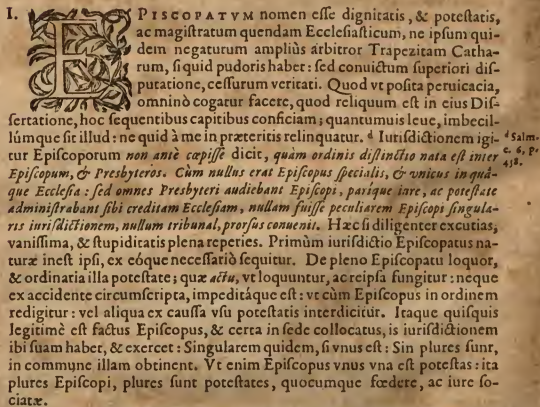 I. EPISCOPATVM nomen esse dignitatis, & potestatis,
ac magistratum quendam Ecclesiasticum, ne ipsum qui-
dem negaturum ampliùs arbitror Trapezitam Catha-
rum, si quid pudoris habet: sed conuictum superiori dis-
putatione, cessurum veritati. Quod vt posita peruicacia,
omninò cogatur facere, quod reliquum est in eius Dis-
sertatione, hoc sequentibus capitibus conficiam; quantumuis leue, imbecil-
lúmque sit illud: ne quid à me in præteritis relinquatur. d Iurisdictionem igi-
tur Episcoporum non antè cœpisse dicit, quàm ordinis distinctio nata est inter
Episcopum, & Presbyteros. Cùm nullus erat Episcopus specialis, & vnicus in quâ-
que Ecclesia: sed omnes Presbyteri audiebant Episcopi, parique iure, ac potestate
administrabant sibi creditam Ecclesiam, nullam fuisse peculiarem Episcopi singula-
ris iurisdictionem, nullum tribunal, prorsus conuenit. Hæc si diligenter excutias,
vanissima, & stupiditatis plena reperies. Primùm iurisdictio Episcopatus na-
turæ inest ipsi, ex eóque necessariò sequitur. De pleno Episcopatu loquor,
& ordinaria illa potestate; quæ actu, vt loquuntur, ac reipsa fungitur: neque
ex accidente circumscripta, impeditáque est: vt cùm Episcopus in ordinem
redigitur: vel aliqua ex caussa vsu potestatis interdicitur. Itaque quisquis
legitimè est factus Episcopus, & certa in sede collocatus, is iurisdictionem
ibi suam habet, & exercet: Singularem quidem, si vnus est: Sin plures sunt,
in commune illam obtinent. Vt enim Episcopus vnus vna est potestas: ita
plures Episcopi, plures sunt potestates, quocumque fœdere, ac iure so-
ciatæ.
d Salm.
c. 6, p.
438.